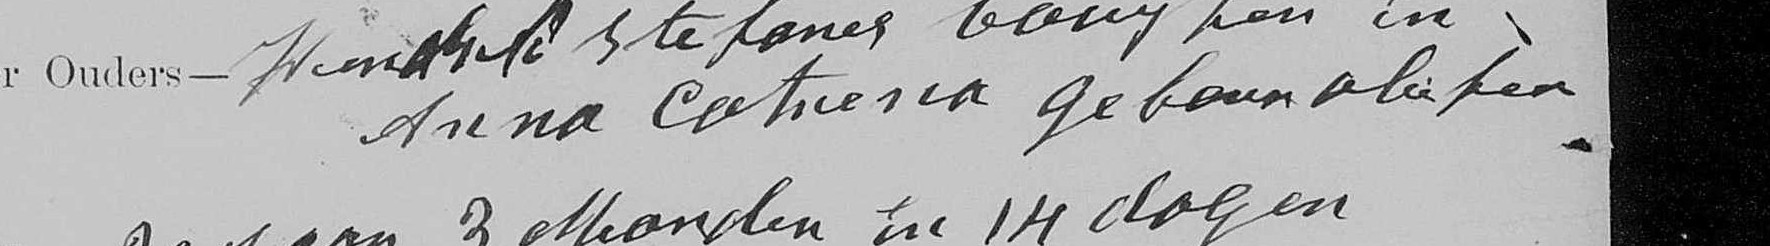 r Ouders — Hendrik stefanes booysen in
Anna Catriena geboun olifier
3 Maanden in 14 dagen